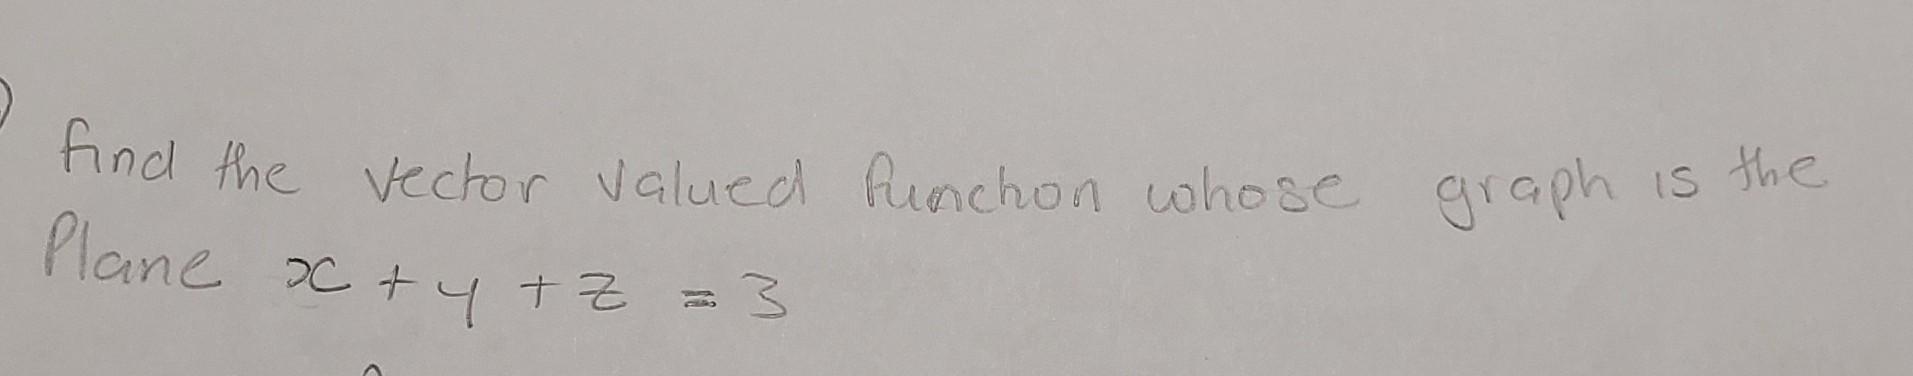 find the vector valued function whose graph is the
Plane x + y + z = 3